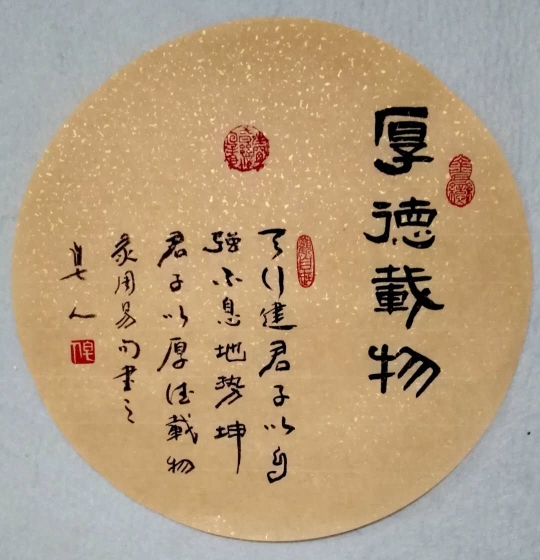 厚德載物
天行健君子以自
強不息地勢坤
君子以厚德載物
用易句書之
人